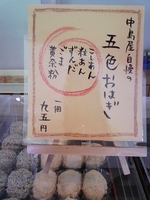 中島屋自慢の
五色おはぎ
こしあん
粒あん
ずんだ
ごま
黄奈粉
一個
九五円